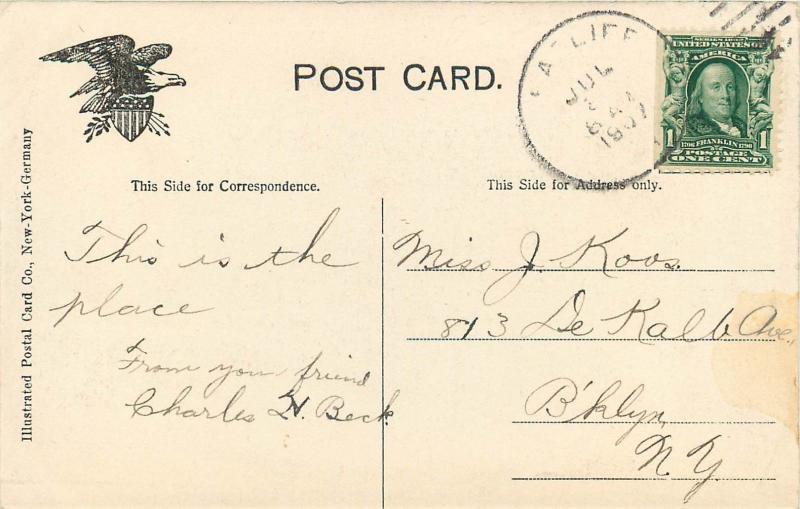 POST CARD.
JUL
SERIES 1902
UNITED STATES OF
AMERICA
1 1706 FRANKLIN 1790 1
POSTAGE
ONE CENT
This Side for Correspondence.
This Side for Address only.
Illustrated Postal Card Co., New-York-Germany
This is the
place
From your friend
Charles H. Beck
Miss J. Koos.
813 De Kalb Ave.,
B'klyn,
N. Y.